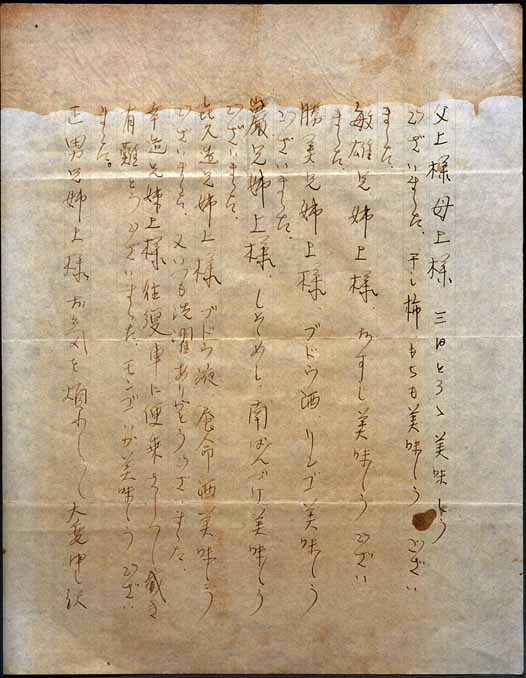 父上様 母上様 三日とろゝ美味しう
ございました。干し柿 もちも美味しうござい
ました。
敏雄兄姉上様 おすし美味しうござい
ました。
勝美兄姉上様 ブドウ酒 リンゴ美味しう
ございました。
巌兄姉上様 しそめし 南ばんづけ美味しう
ございました。
喜久造兄姉上様 ブドウ液 養命酒美味しう
ございました。又いつも洗濯ありがとうございました。
幸造兄姉上様 往復車に便乗さして戴き
有難とうございました。モンゴいか美味しうござい
ました。
正男兄姉上様お気を煩わして大変申し訳